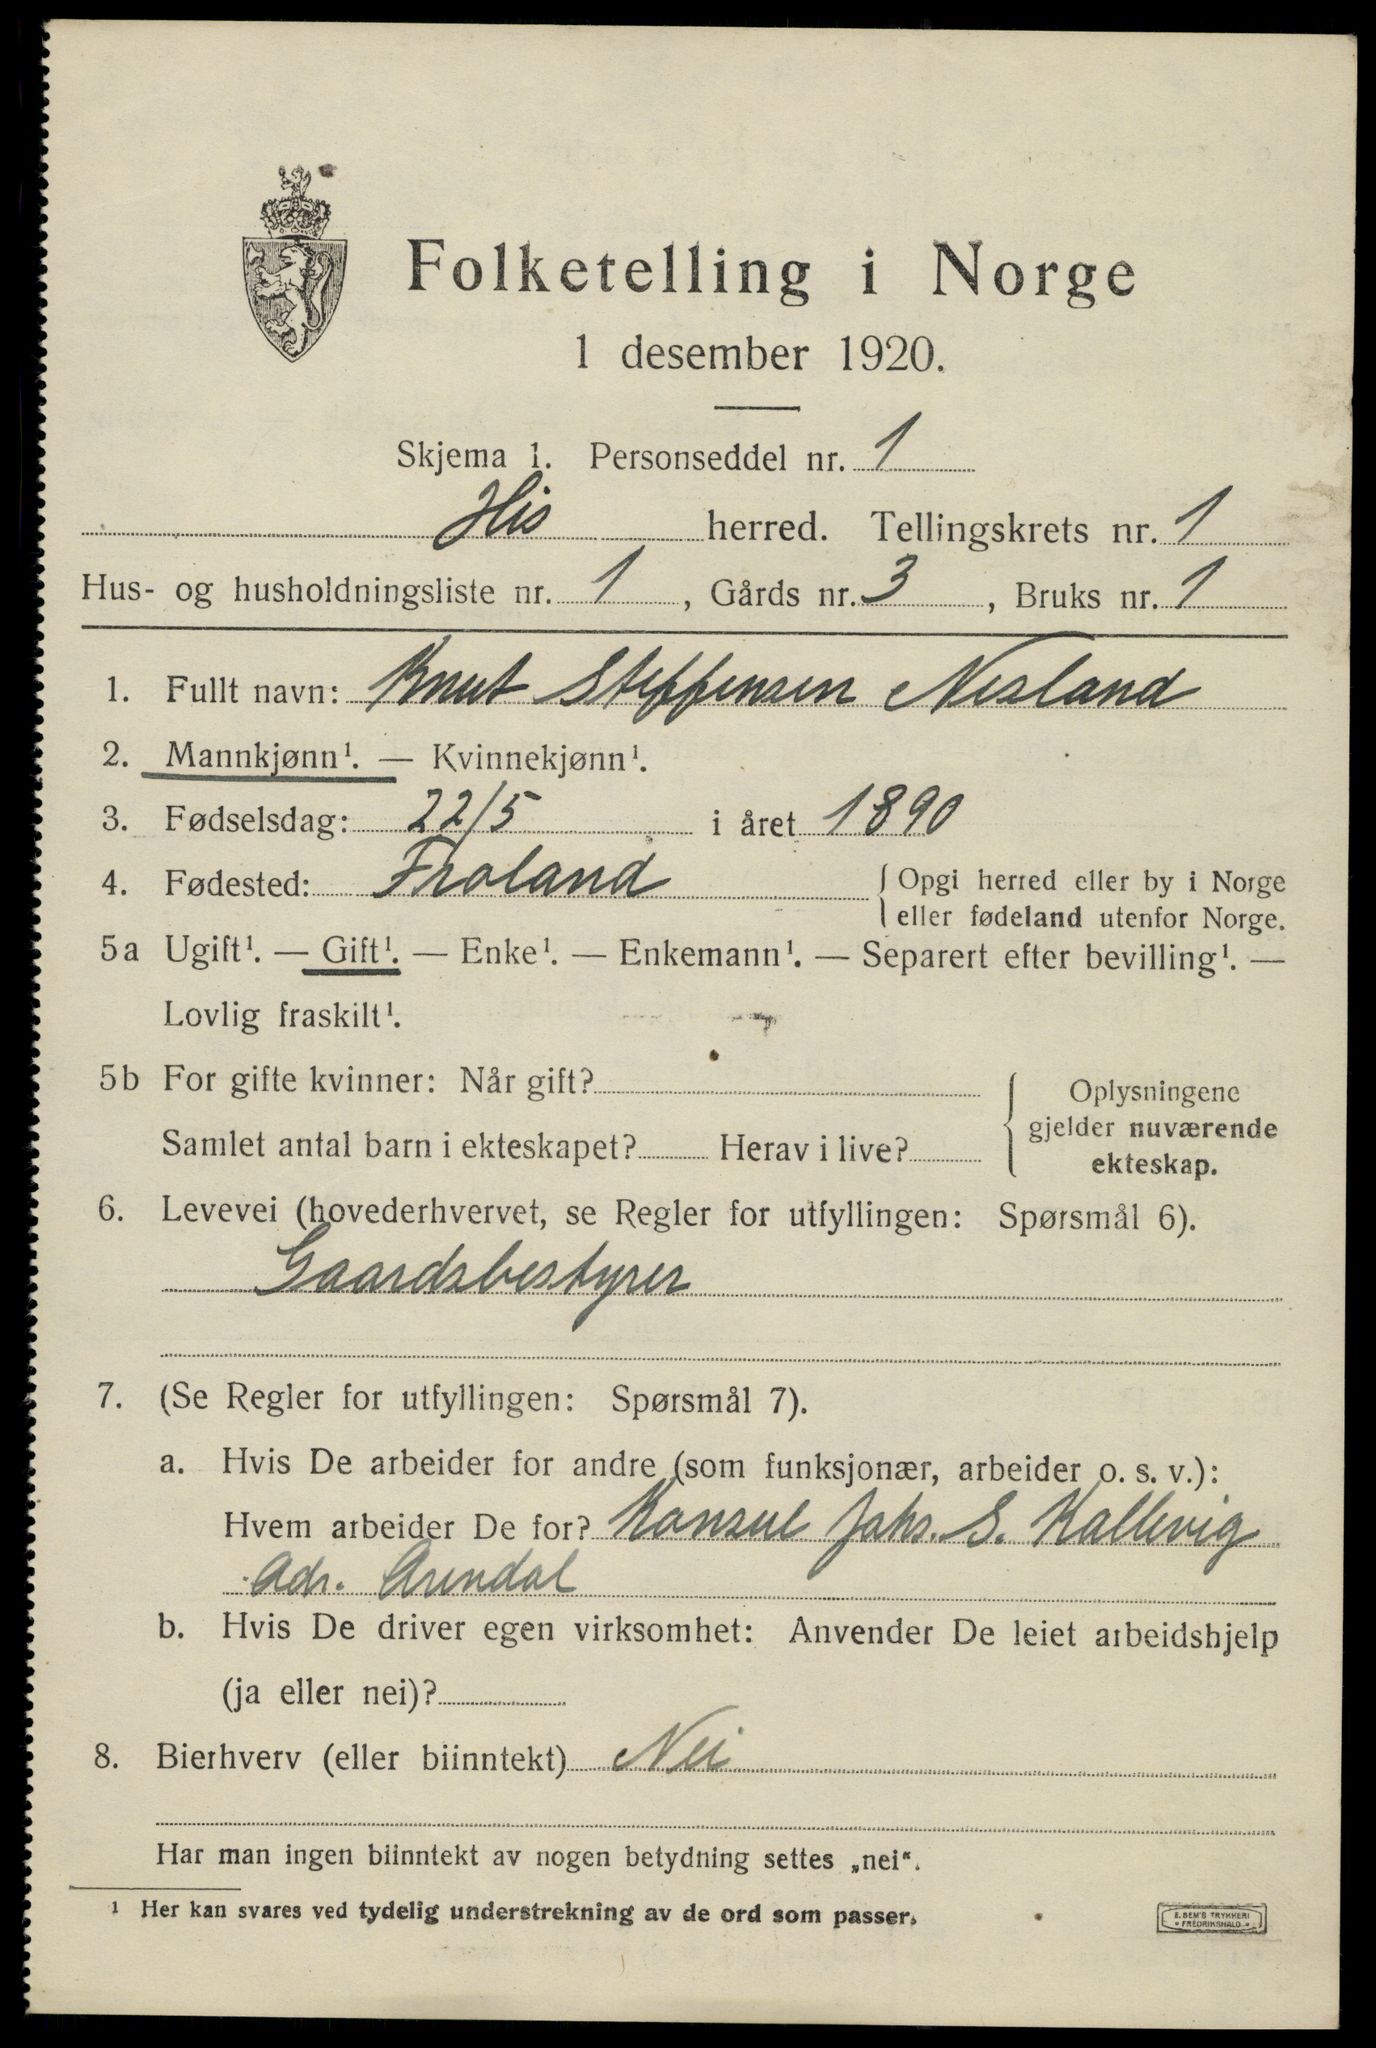 Folketelling i Norge
1 desember 1920.
Skjema 1. Personseddel nr. 1
His herred. Tellingskrets nr. 1
Hus- og husholdningsliste nr. 1, Gårds nr. 3, Bruks nr. 1
1. Fullt navn: Knut Steffensen Nesland
2. Mannkjønn¹. — Kvinnekjønn¹.
3. Fødselsdag: 22/5 i året 1890
4. Fødested: Froland { Opgi herred eller by i Norge
eller fødeland utenfor Norge.
5a Ugift¹. — Gift¹. — Enke¹. — Enkemann¹. — Separert efter bevilling¹. —
Lovlig fraskilt¹.
5b For gifte kvinner: Når gift?
Samlet antal barn i ekteskapet? Herav i live?
Oplysningene
gjelder nuværende
ekteskap.
6. Levevei (hovederhvervet, se Regler for utfyllingen: Spørsmål 6).
Gaardsbestyrer
7. (Se Regler for utfyllingen: Spørsmål 7).
a. Hvis De arbeider for andre (som funksjonær, arbeider o. s. v.):
Hvem arbeider De for? Konsul Johs. S. Kallevig
Adr. Arendal
b. Hvis De driver egen virksomhet: Anvender De leiet arbeidshjelp
(ja eller nei)?
8. Bierhverv (eller biinntekt) Nei
Har man ingen biinntekt av nogen betydning settes „nei“.
¹ Her kan svares ved tydelig understrekning av de ord som passer.
E. SEM'S TRYKKERI
• FREDRIKSHALD •